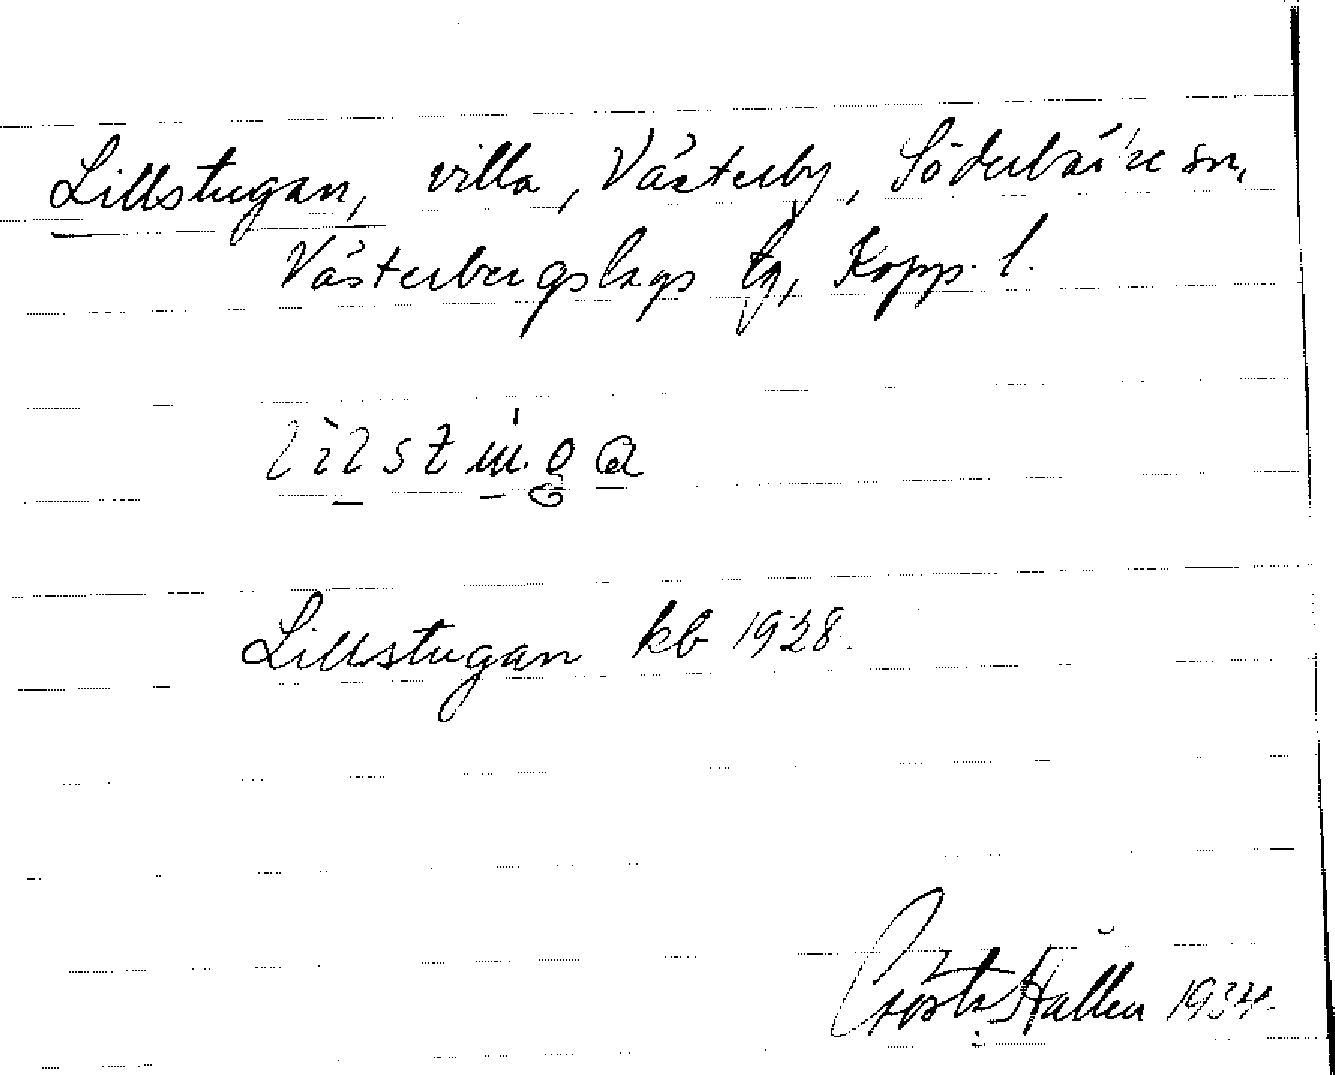 Lillstugan, villa, Västerby, Söderbärke sn,
Västerbergslags tg, Kopp. l.
Lillstugan kb 1928.
Gösta Hallén 1934.